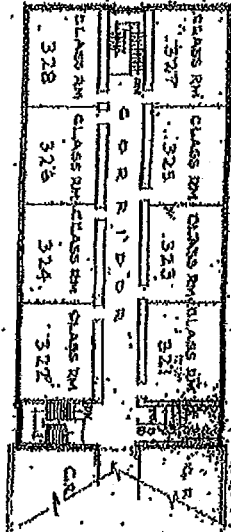 CLASS RM
328
CLASS RM
326
CLASS RM
324
CLASS RM
322
CORRIDOR
CLASS RM
327
CLASS RM
325
CLASS RM
323
CLASS RM
321